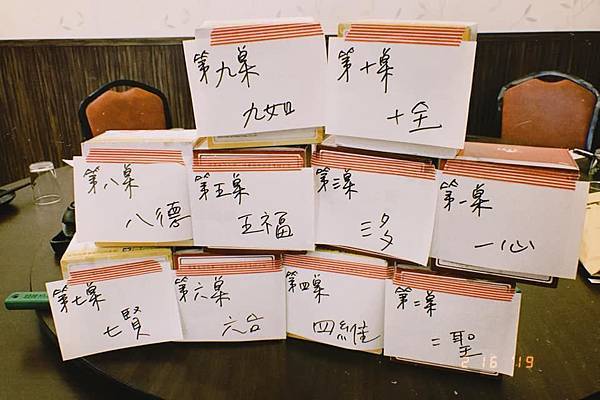 第九桌
九如
第十桌
十全
第八桌
八德
第五桌
五福
第三桌
三多
第一桌
一心
第七桌
七賢
第六桌
六合
第四桌
四維
第二桌
二聖
2 16 '19